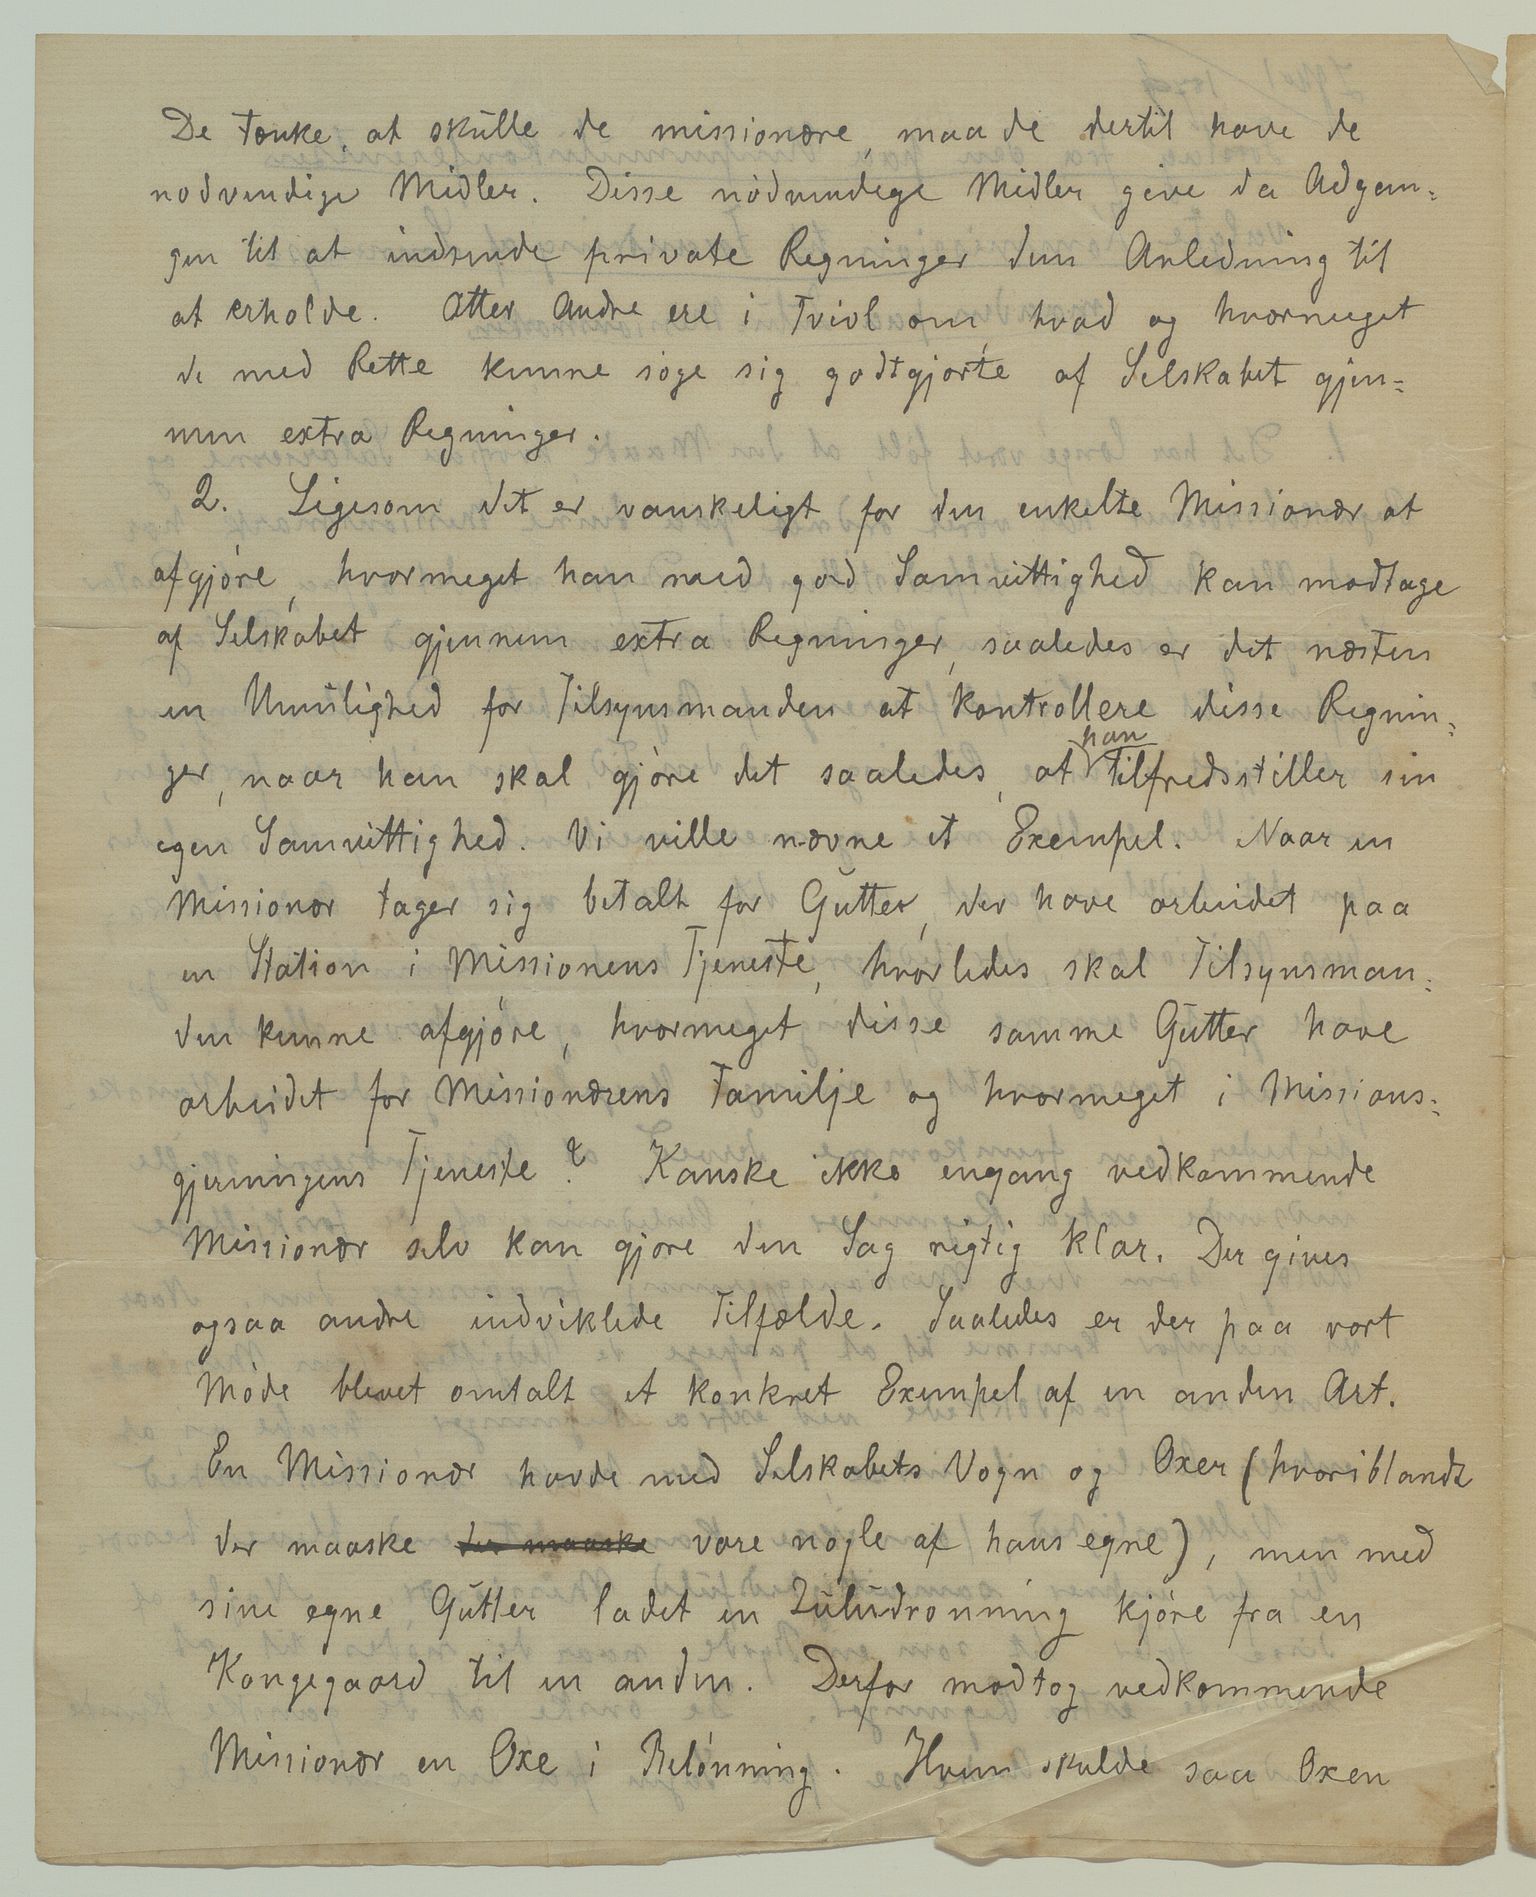 De tænke, at skulle de missionære, maa de dertil have de
nødvendige Midler. Disse nødvendige Midler give da Adgan-
gen til at indsende private Regninger den Anledning til
at erholde. Atter Andre ere i Tvivl om, hvad og hvormeget
de med Rette kunne søge sig godtgjorte af Selskabet gjen-
nem extra Regninger.
2. Ligesom det er vanskeligt for den enkelte Missionær at
afgjøre, hvormeget han med god Samvittighed kan modtage
af Selskabet gjennem extra Regninger, saaledes er det næsten
en Umulighed for Tilsynsmanden at kontrollere disse Regnin-
ger, naar han skal gjøre det saaledes, at han tilfredsstiller sin
egen Samvittighed. Vi ville nævne et Exempel. Naar en
Missionær tager sig betalt for Gutter, der have arbeidet paa
en Station i Missionens Tjeneste, hvorledes skal Tilsynsman-
den kunne afgjøre, hvormeget disse samme Gutter have
arbeidet for Missionærens Familje og hvormeget i Missions-
gjerningens Tjeneste? Kanske ikke engang vedkommende
Missionær selv kan gjøre den Sag rigtig klar. Der gives
ogsaa andre indviklede Tilfælde. Saaledes er der paa vort
Møde blevet omtalt et konkret Exempel af en anden Art.
En Missionær havde med Selskabets Vogn og Oxer (hvoriblandt
der maaske der maaske vare nogle af hans egne), men med
sine egne Gutter ladet en Zuludronning kjøre fra en
Kongegaard til en anden. Derfor modtog vedkommende
Missionær en Oxe i Belønning. Hvem skulde saa Oxen